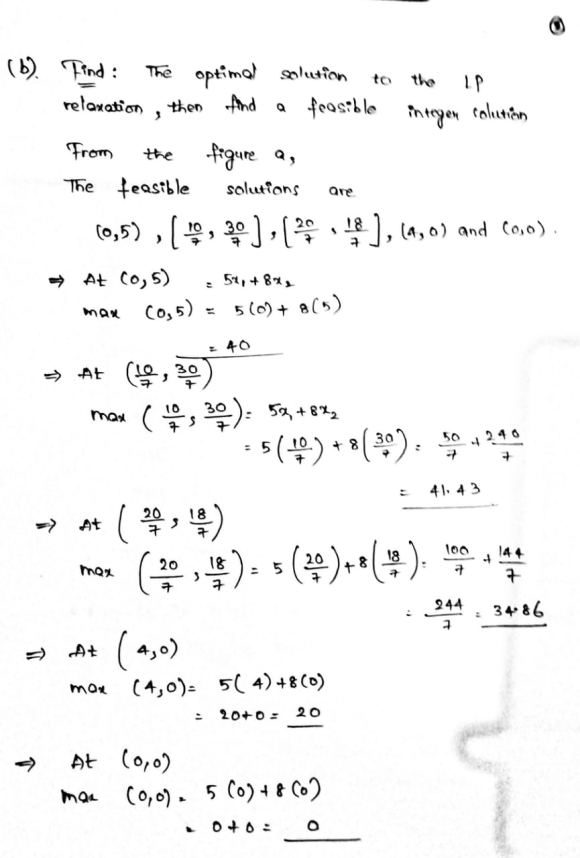 (b). Find : The optimal solution to the LP
relaxation, then find a feasible integer solution
From the figure a,
The feasible solutions are
(0,5), [10/7, 30/7], [20/7, 18/7], (4,0) and (0,0).
⇒ At (0,5) = 5x₁+8x₂
max (0,5) = 5(0) + 8(5)
= 40
⇒ At (10/7, 30/7)
max (10/7, 30/7) = 5x₁+8x₂
= 5(10/7) + 8(30/7) = 50/7 + 240/7
= 41.43
⇒ At (20/7, 18/7)
max (20/7, 18/7) = 5(20/7)+8(18/7) = 100/7 + 144/7
= 244/7 = 34.86
⇒ At (4,0)
max (4,0) = 5(4)+8(0)
= 20+0 = 20
⇒ At (0,0)
max (0,0) = 5(0)+8(0)
= 0+0 = 0